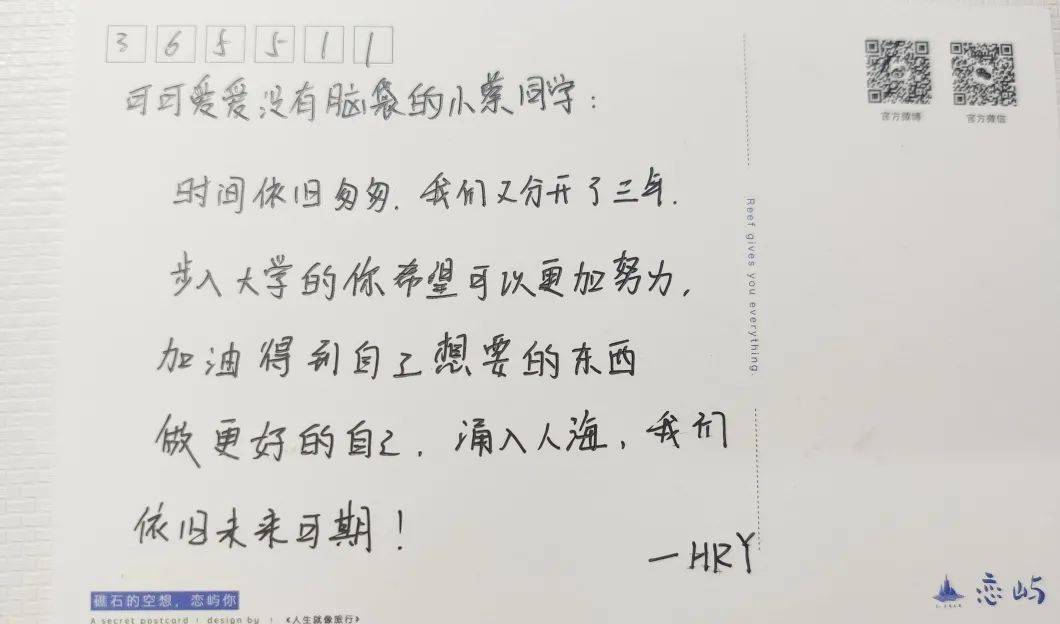 365511
可可爱爱没有脑袋的小蔡同学：
时间依旧匆匆.我们又分开了三年.
步入大学的你希望可以更加努力,
加油得到自己想要的东西
做更好的自己.涌入人海,我们
依旧未来可期！
一HRY
官方微博
官方微信
Reef gives you everything.
礁石的空想，恋屿你
A secret postcard ! design by ! 《人生就像旅行》
恋屿